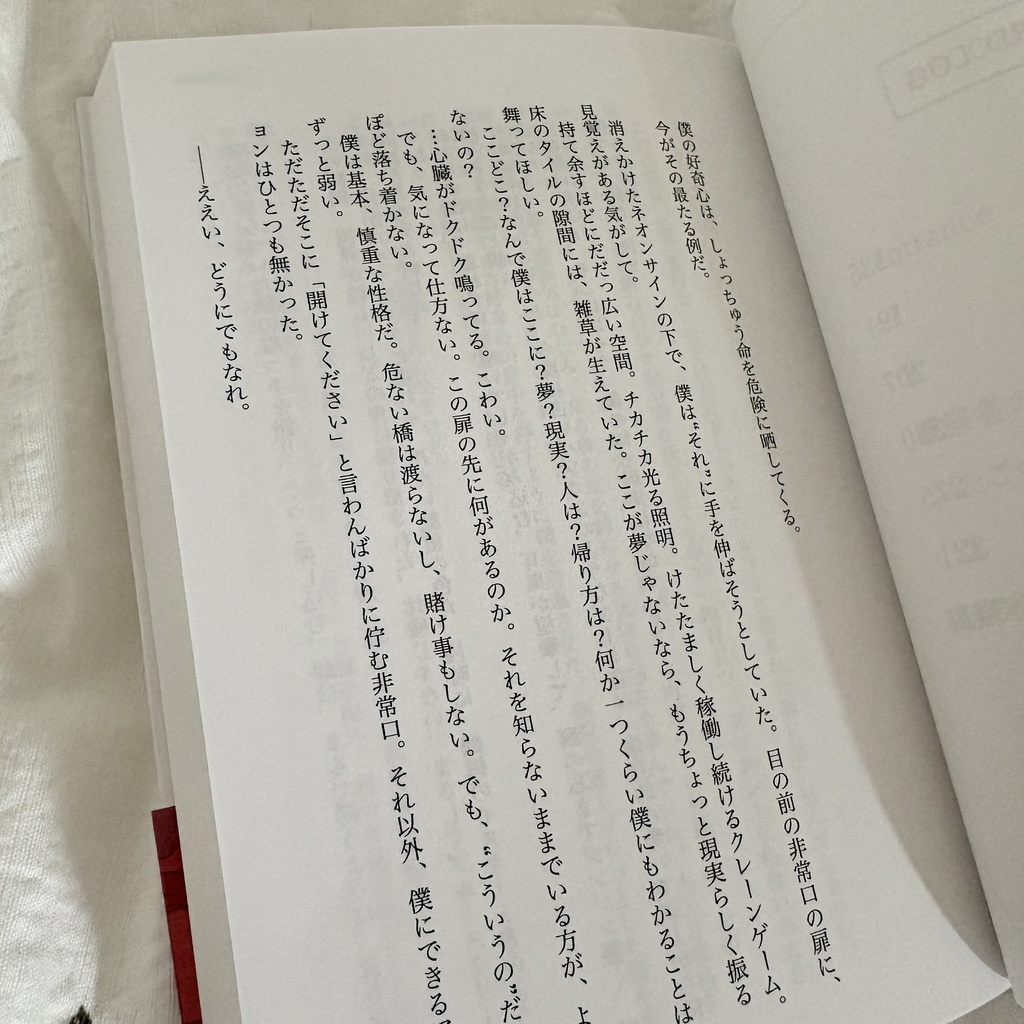 僕の好奇心は、しょっちゅう命を危険に晒してくる。
今がその最たる例だ。
消えかけたネオンサインの下で、僕は〝それ〟に手を伸ばそうとしていた。目の前の非常口の扉に、
見覚えがある気がして。
持て余すほどにだだっ広い空間。チカチカ光る照明。けたたましく稼働し続けるクレーンゲーム。
床のタイルの隙間には、雑草が生えていた。ここが夢じゃないなら、もうちょっと現実らしく振る
舞ってほしい。
ここどこ?なんで僕はここに?夢?現実?人は?帰り方は?何か一つくらい僕にもわかることは
ないの?
…心臓がドクドク鳴ってる。こわい。
でも、気になって仕方ない。この扉の先に何があるのか。それを知らないままでいる方が、よ
ぽど落ち着かない。
僕は基本、慎重な性格だ。危ない橋は渡らないし、賭け事もしない。でも、〝こういうの〟だ
ずっと弱い。
ただただそこに「開けてください」と言わんばかりに佇む非常口。それ以外、僕にできる
ョンはひとつも無かった。
――ええい、どうにでもなれ。